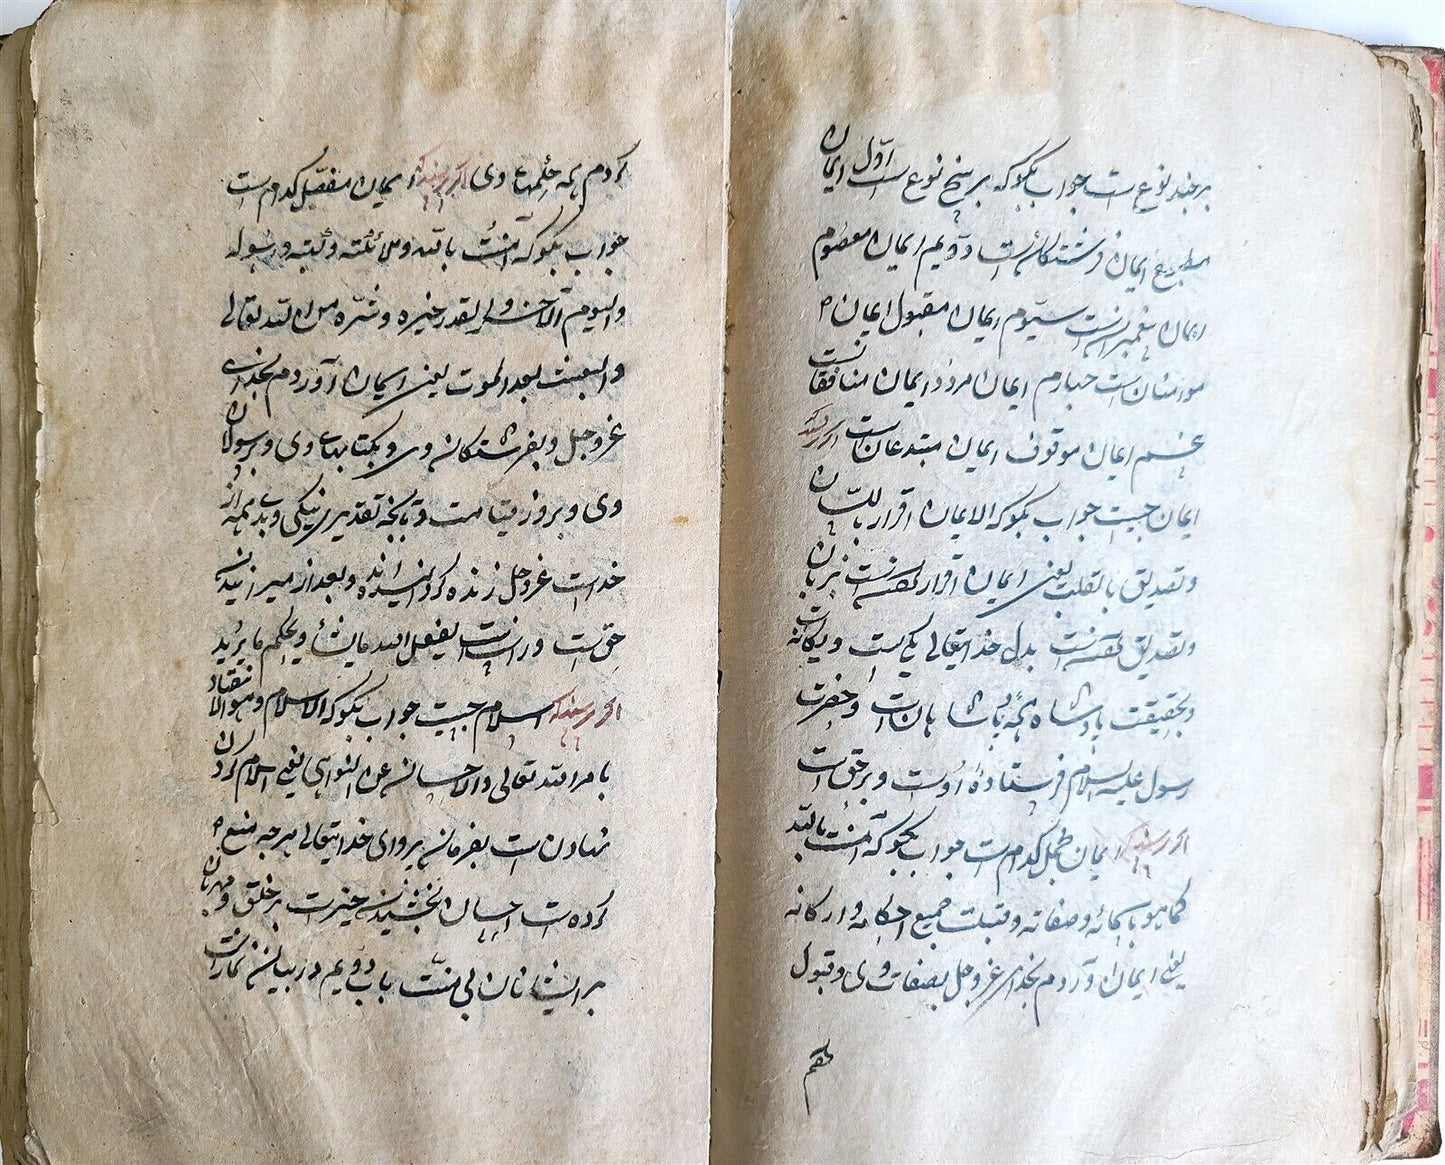 بر چند نوع است جواب بگو که بر پنج نوع است اوّل ایمان
مطبوع ایمان فرشتگان است دویم ایمان معصوم
ایمان پیغمبران است سیّوم ایمان مقبول ایمان
مؤمنان است چهارم ایمان مردود ایمان منافقانست
پنجم ایمان موقوف ایمان مبتدعان است اگر پرسند که
ایمان چیست جواب بگو که الایمان اقرار باللّسان
و تصدیق بالقلب یعنی ایمان اقرار گفتن است بزبان
و تصدیق گفتن است بدل خدایتعالی یکی است و یگانه است
و بحقیقت بادشاه همه بادشاهان است و حضرت
رسول علیه السلام فرستادهٔ اوست و برحق است
اگر پرسند که ایمان مجمل کدام است جواب بگو که آمنت بالله
کما هو باسمائه وصفاته وقبلت جمیع احکامه وارکانه
یعنی ایمان آوردم بخدای عزوجل بصفات وی و قبول
کردم همه حکمهای وی اگر پرسند که ایمان مفصّل کدام است
جواب بگو که آمنتُ بالله وملائکته وکتبه ورسوله
والیوم الآخر والقدر خیره وشرّه من الله تعالی
والبعث بعد الموت یعنی ایمان آوردم بخدای
عزوجل و بفرشتگان وی و بکتابهای وی و برسولان
وی و بروز قیامت و بآنکه تقدیر نیکی و بدی همه از
خداست عزوجل و بعد از میرانیدن
حق است و راست است یفعل الله مایشأ ویحکم ما یرید
اگر پرسند که اسلام چیست جواب بگو که الاسلام وهو الانقیاد
بامر الله تعالی والاحسان عن النواهی یعنی اسلام کردن
نهادن است بفرمان خدایتعالی هرچه منع
کرده است احسان بخشیدن خیرست بر خلق و مهربان
بر ایشان بی منّت باب دویم در بیان نماز است